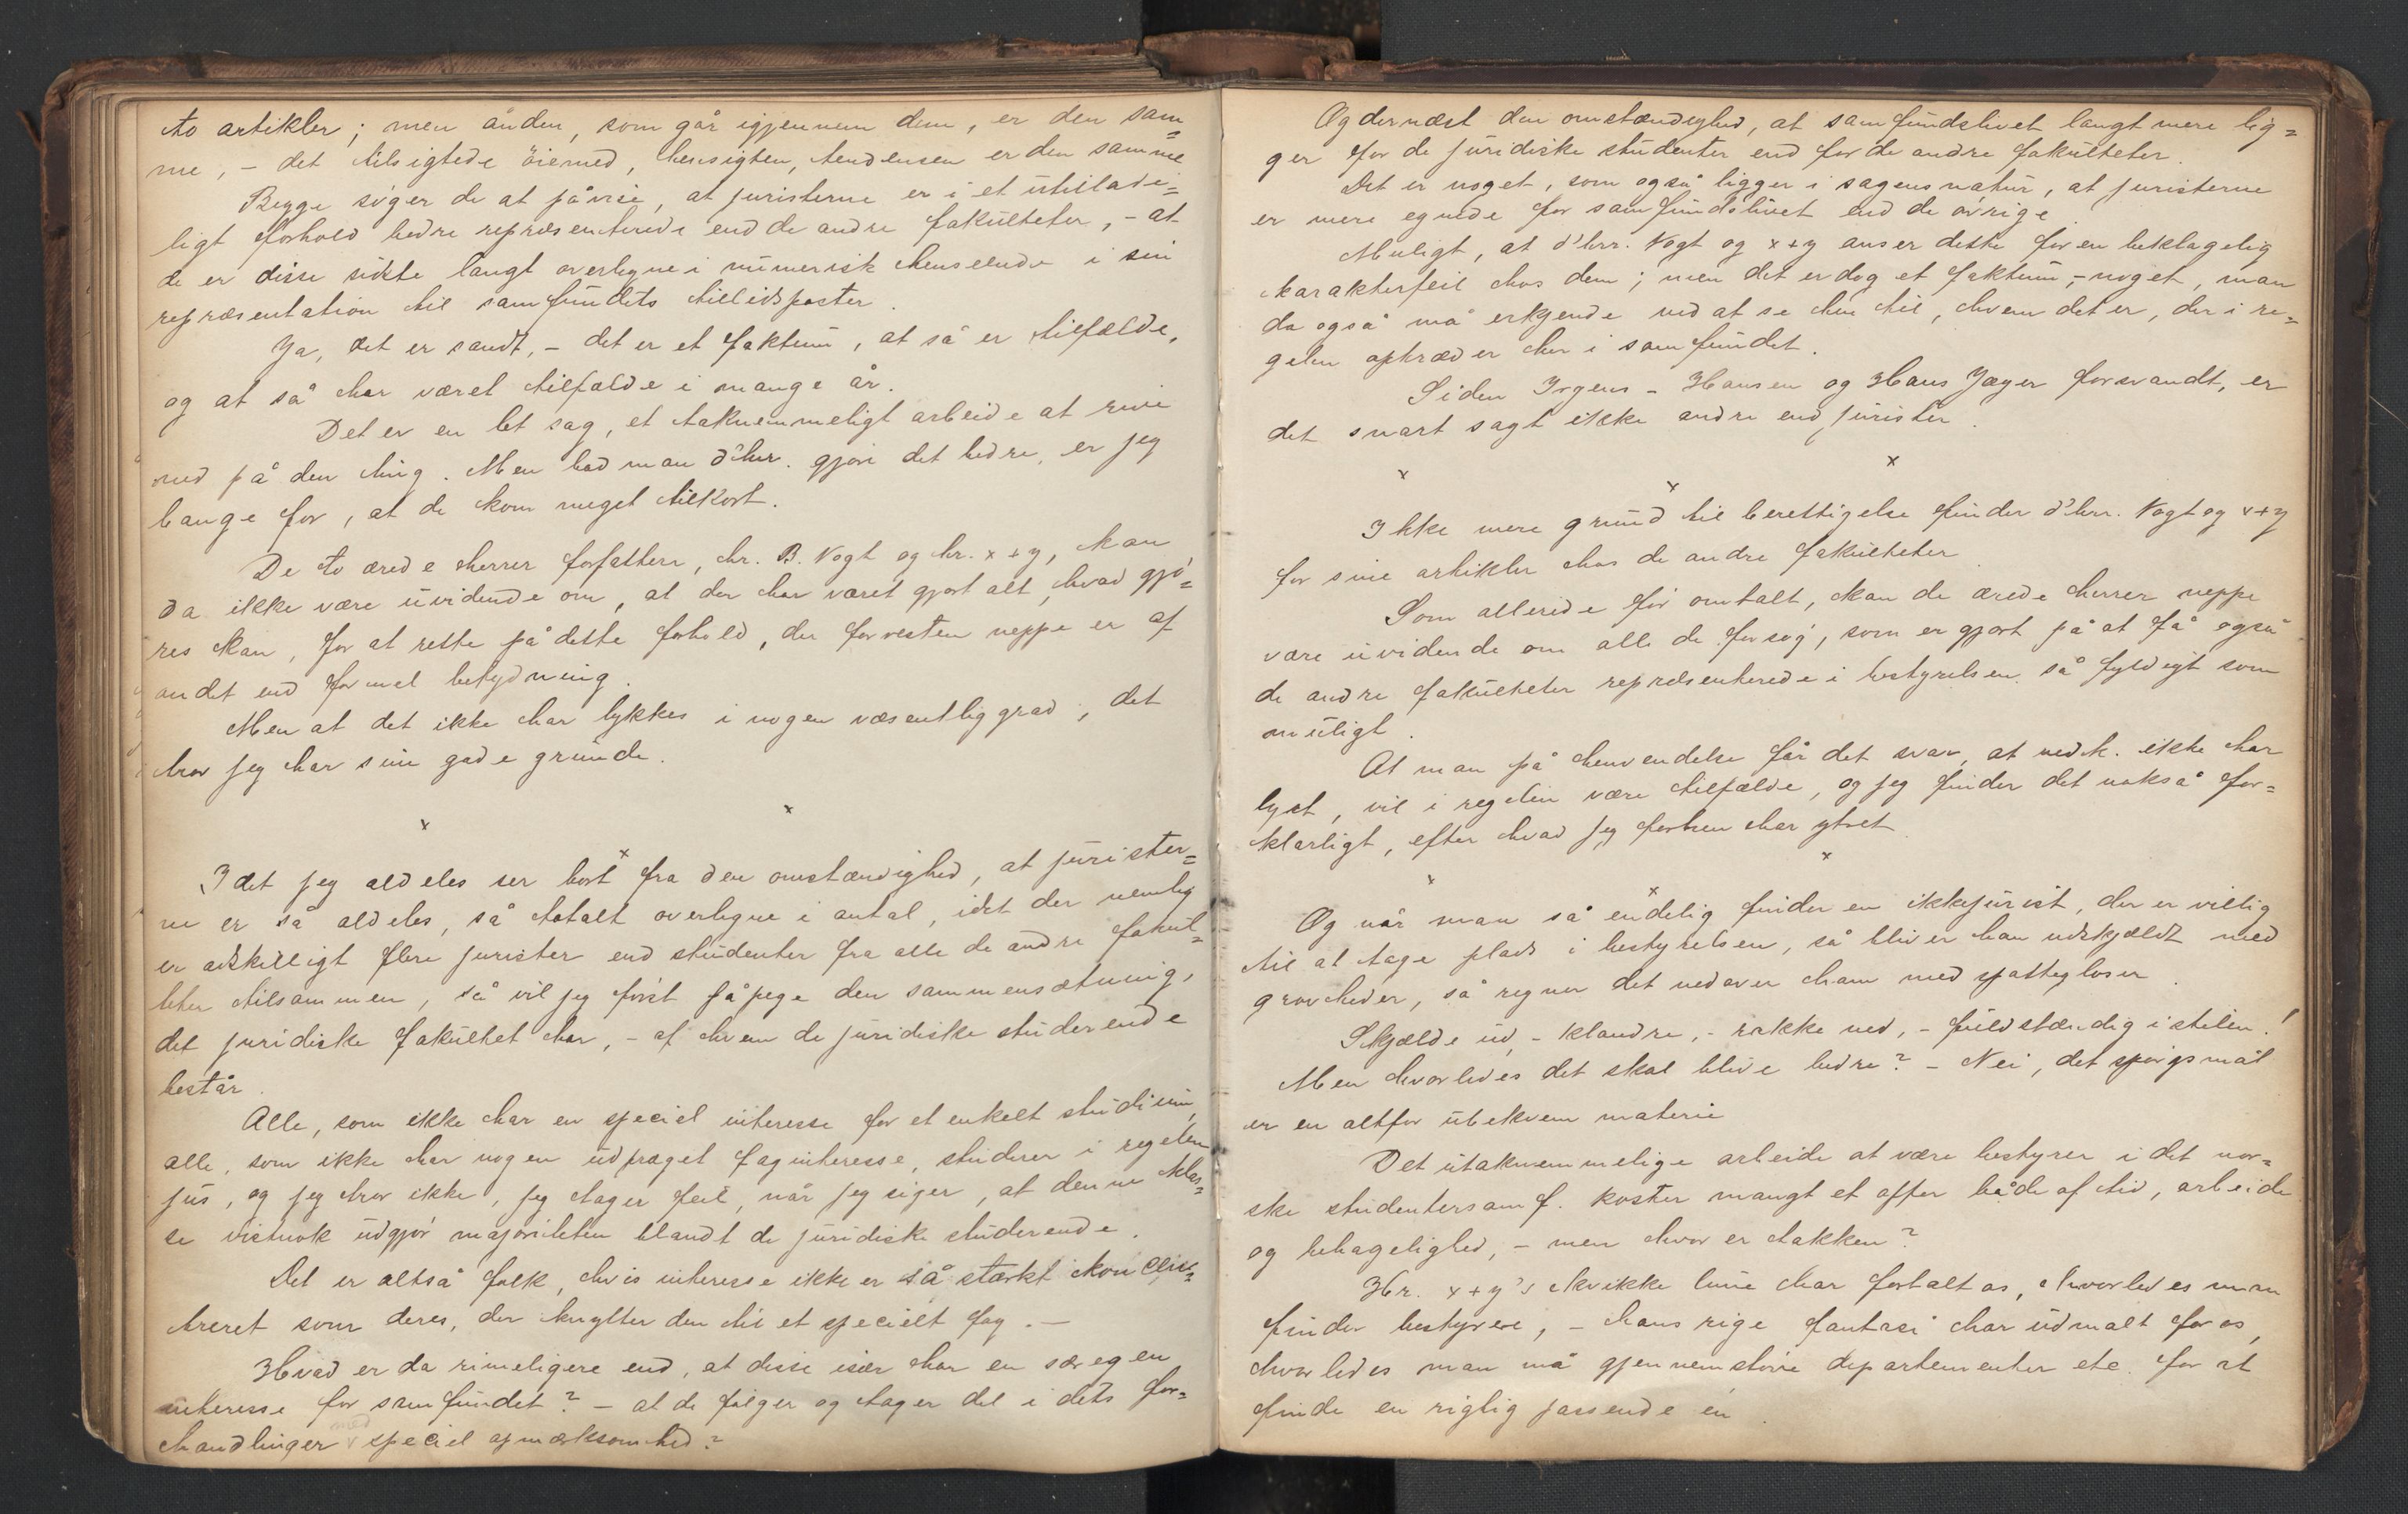 to artikler; men ånden, som går igjennem dem, er den sam=
me, - det tilsigtede öiemed, hensigten, tendensen er den samme
Begge söger de at påvise, at juristerne er i et utilade=
ligt forhold bedre repræsenterede end de andre fakulteter, - at
de er disse sidste langt overlegne i numerisk henseende i sin
repræsentation til samfundets tillidsposter.
Ja, det er sandt, - det er et faktum, at så er tilfælde,
og at så har været tilfælde i mange år.
Det er en let sag, et taknemmeligt arbeide at rive
ned på den ting. Men bad man d'hrr. gjöre det bedre, er jeg
bange for, at de kom meget tilkort.
De to ærede herrer forfattere, hr. B. Vogt og hr. x + y, kan
da ikke være uvidende om, at der har været gjort alt, hvad gjö=
res kan, for at rette på dette forhold, der forresten neppe er af
andet end formel betydning.
Men at det ikke har lykkes i nogen væsentlig grad, det
tror jeg har sine gode grunde.
x x x
Idet jeg aldeles ser bort fra den omstændighed, at jurister=
ne er så aldeles, så totalt overlegne i antal, idet der nemlig
er adskilligt flere jurister end studenter fra alle de andre fakul=
teter tilsammen, så vil jeg först påpege den sammensætning,
det juridiske fakultet har, - af hvem de juridiske studerende
består.
Alle, som ikke har en speciel interesse for et enkelt studium,
alle, som ikke har nogen udpræget faginteresse, studerer i regelen
jus, og jeg tror ikke, jeg tager feil, når jeg siger, at denne klas=
se vistnok udgjör majoriteten blandt de juridiske studerende.
Det er altså folk, hvis interesse ikke er så stærkt koncen=
treret som deres, der knytter den til et specielt fag. -
Hvad er da rimeligere end, at disse især har en særegen
interesse for samfundet? - at de fölger og tager del i dets for=
handlinger med speciel opmærksomhed?
Og dernæst den omstændighed, at samfundslivet langt mere lig=
ger for de juridiske studenter end for de andre fakulteter.
Det er noget, som også ligger i sagens natur, at juristerne
er mere egnede for samfundslivet end de övrige.
Muligt, at d'hrr. Vogt og x+y anser dette for en beklagelig
karakterfeil hos dem; men det er dog et faktum, - noget, man
da også må erkjende ved at se hen til, hvem det er, der i re=
gelen optræder her i samfundet.
Siden Irgens - Hansen og Hans Jæger forsvandt, er
det snart sagt ikke andre end jurister.
x x x
Ikke mere grund til berettigelse finder d'hrr. Vogt og x+y
for sine artikler hos de andre fakulteter.
Som allerede för omtalt, kan de ærede herrer neppe
være uvidende om alle de forsög, som er gjort på at få også
de andre fakulteter repræsenterede i bestyrelsen så fyldigt som
muligt.
At man på henvendelse får det svar, at vedk. ikke har
lyst, vil i regelen være tilfælde, og jeg finder det nokså for=
klarligt, efter hvad jeg forhen har ytret.
x x x
Og når man så endelig finder en ikkejurist, der er villig
til at tage plads i bestyrelsen, så bliver han udskjældt med
grovheder, så regner det nedover ham med spottegloser.
Skjælde ud, - klandre, - rakke ned, - fuldstændig i stilen!
Men hvorledes det skal blive bedre? - Nei, det spörgsmål
er en altfor ubekvem materie
Det utaknemmelige arbeide at være bestyrer i det nor=
ske studentersamf. koster mangt et offer både af tid, arbeide
og behagelighed, - men hvor er takken?
Hr. x+y's kvikke lune har fortalt os, hvorledes man
finder bestyrere, - hans rige fantasi har udmalt for os,
hvorledes man må gjennemstöve departementer etc. for at
finde en rigtig passende én.